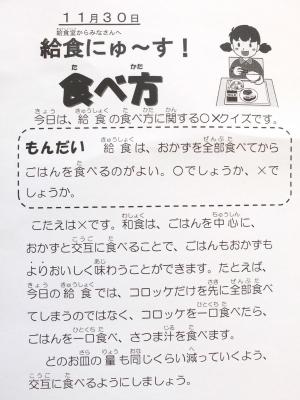 11月30日
給食室からみなさんへ
給食にゅ〜す！
食べ方
今日は、給食の食べ方に関する○×クイズです。
もんだい　給食は、おかずを全部食べてから
ごはんを食べるのがよい。○でしょうか、×で
しょうか。
こたえは×です。和食は、ごはんを中心に、
おかずと交互に食べることで、ごはんもおかずも
よりおいしく味わうことができます。たとえば、
今日の給食では、コロッケだけを先に全部食べ
てしまうのではなく、コロッケを一口食べたら、
ごはんを一口食べ、さつま汁を食べます。
どのお皿の量も同じくらい減っていくよう、
交互に食べるようにしましょう。